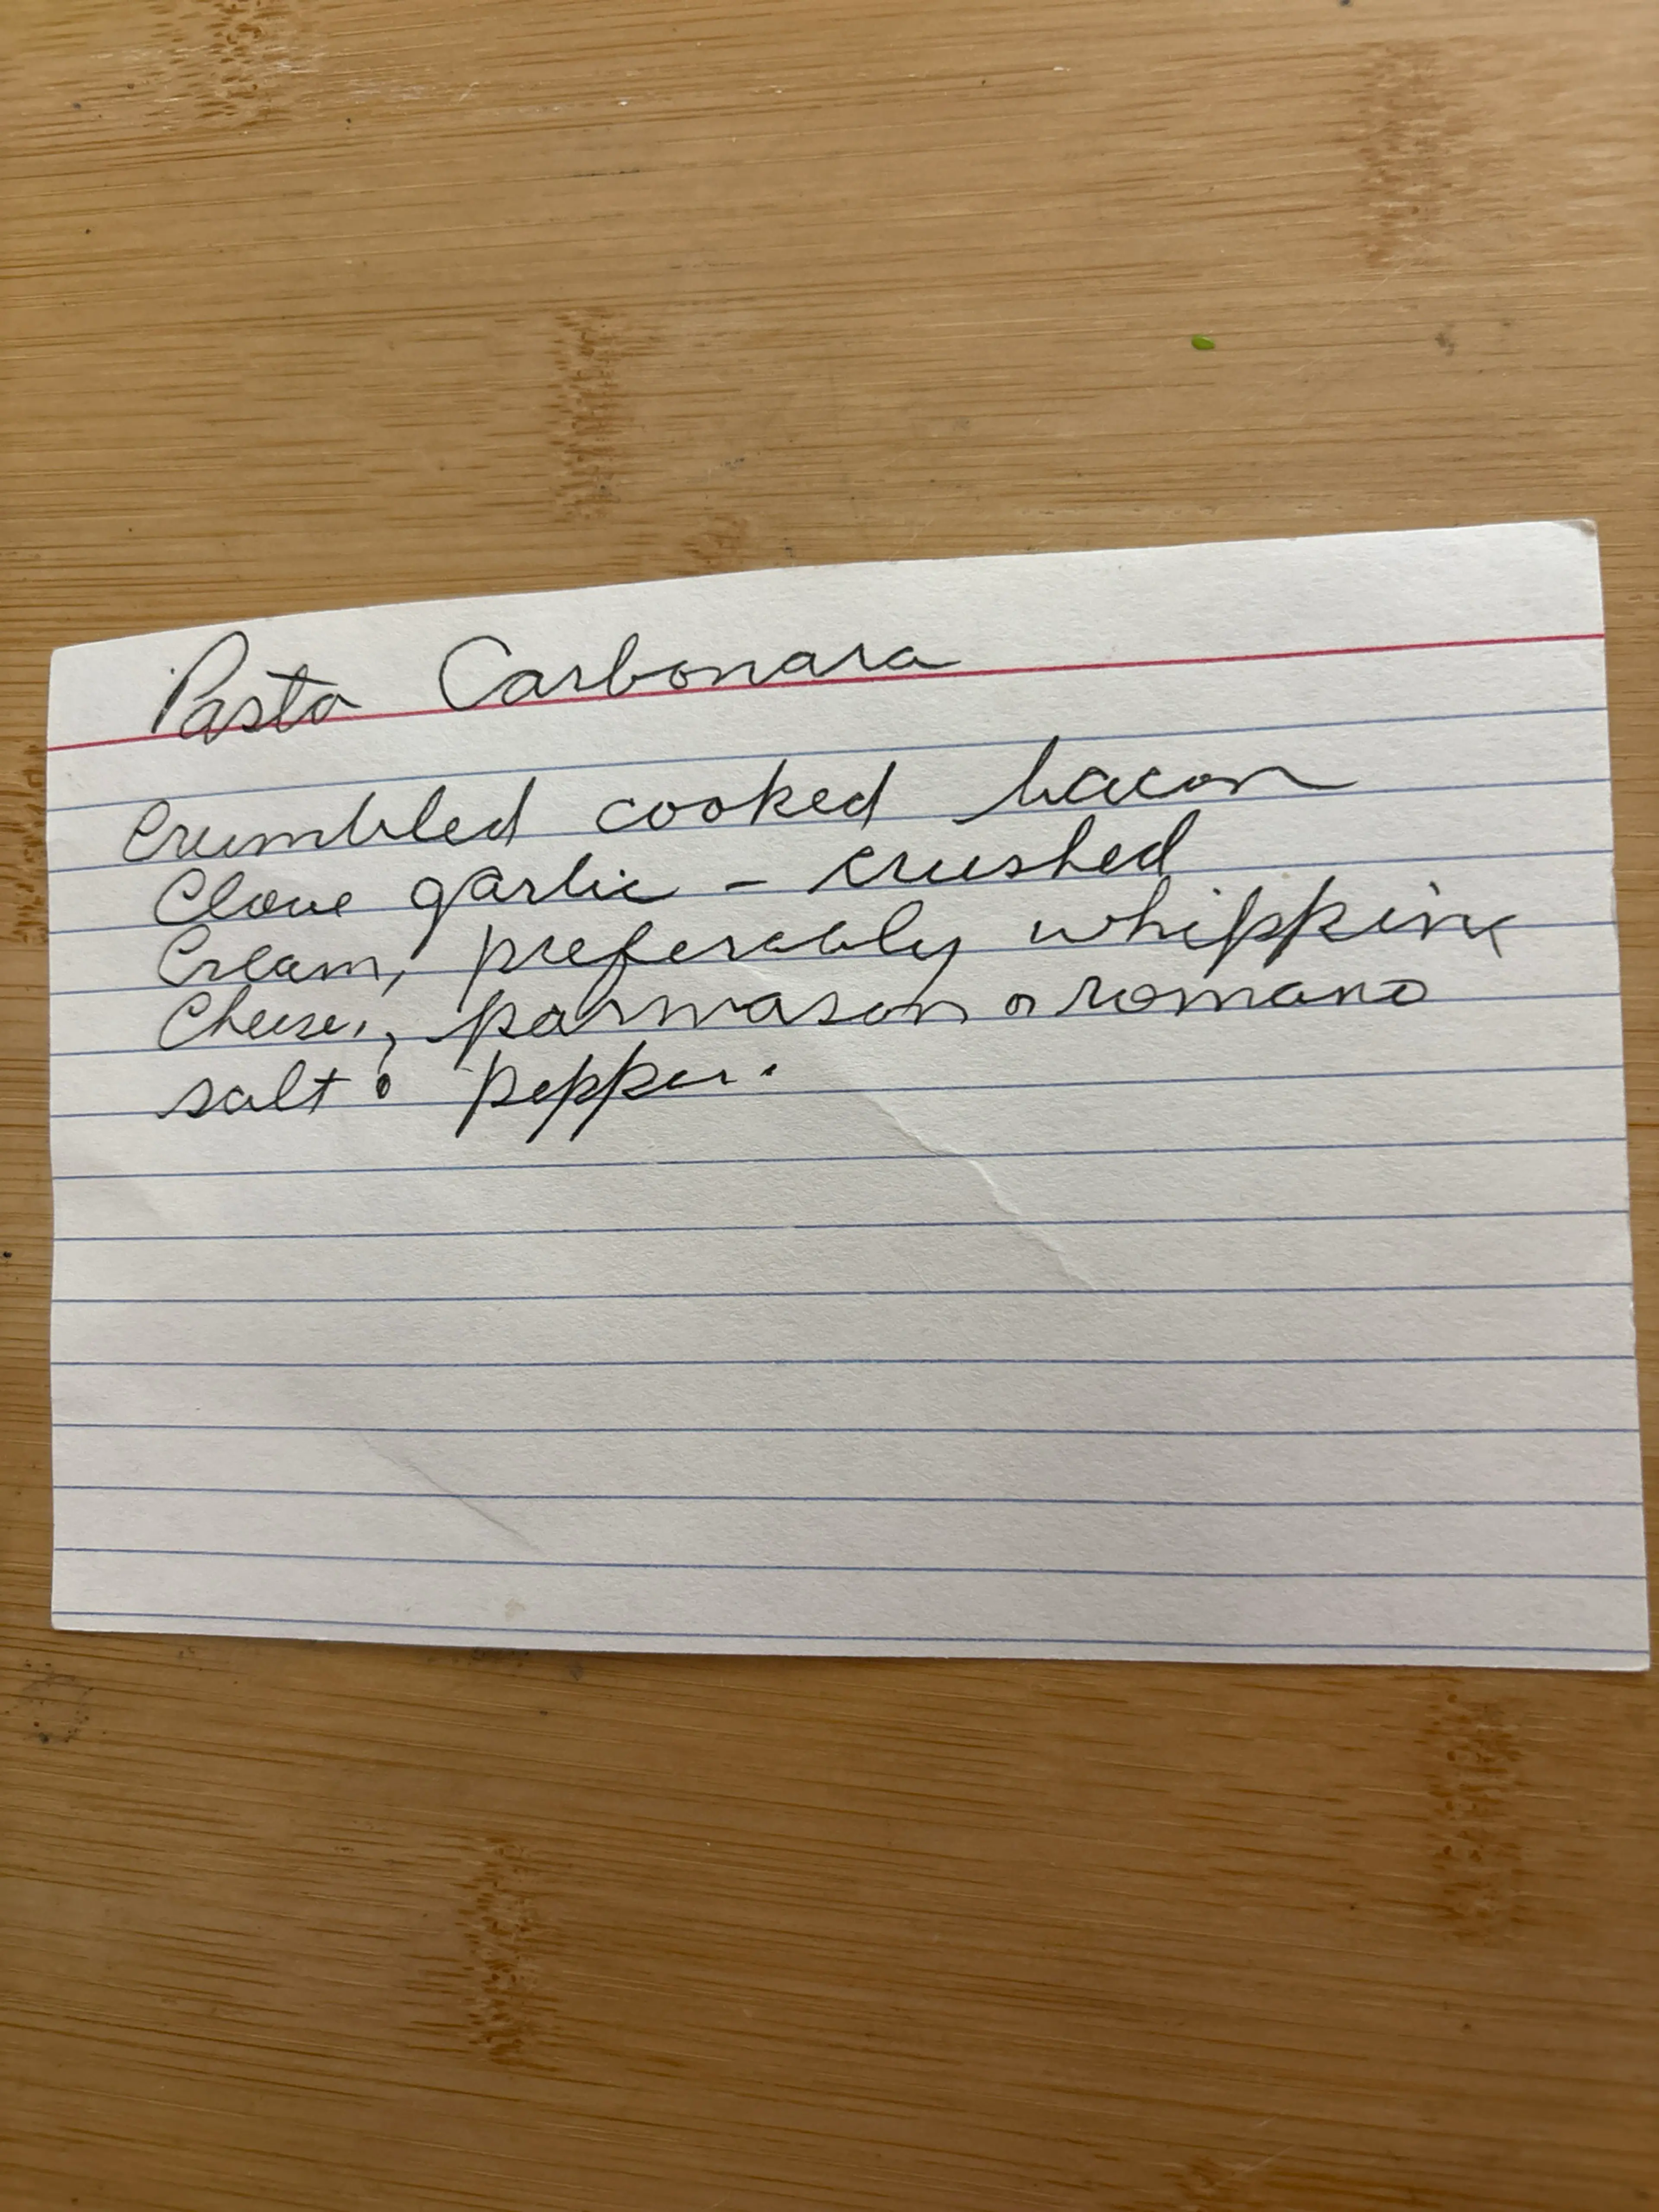 Pasta Carbonara
Crumbled cooked bacon
Clove garlic - crushed
Cream, preferably whipping
Cheese, parmason or romano
salt & pepper.